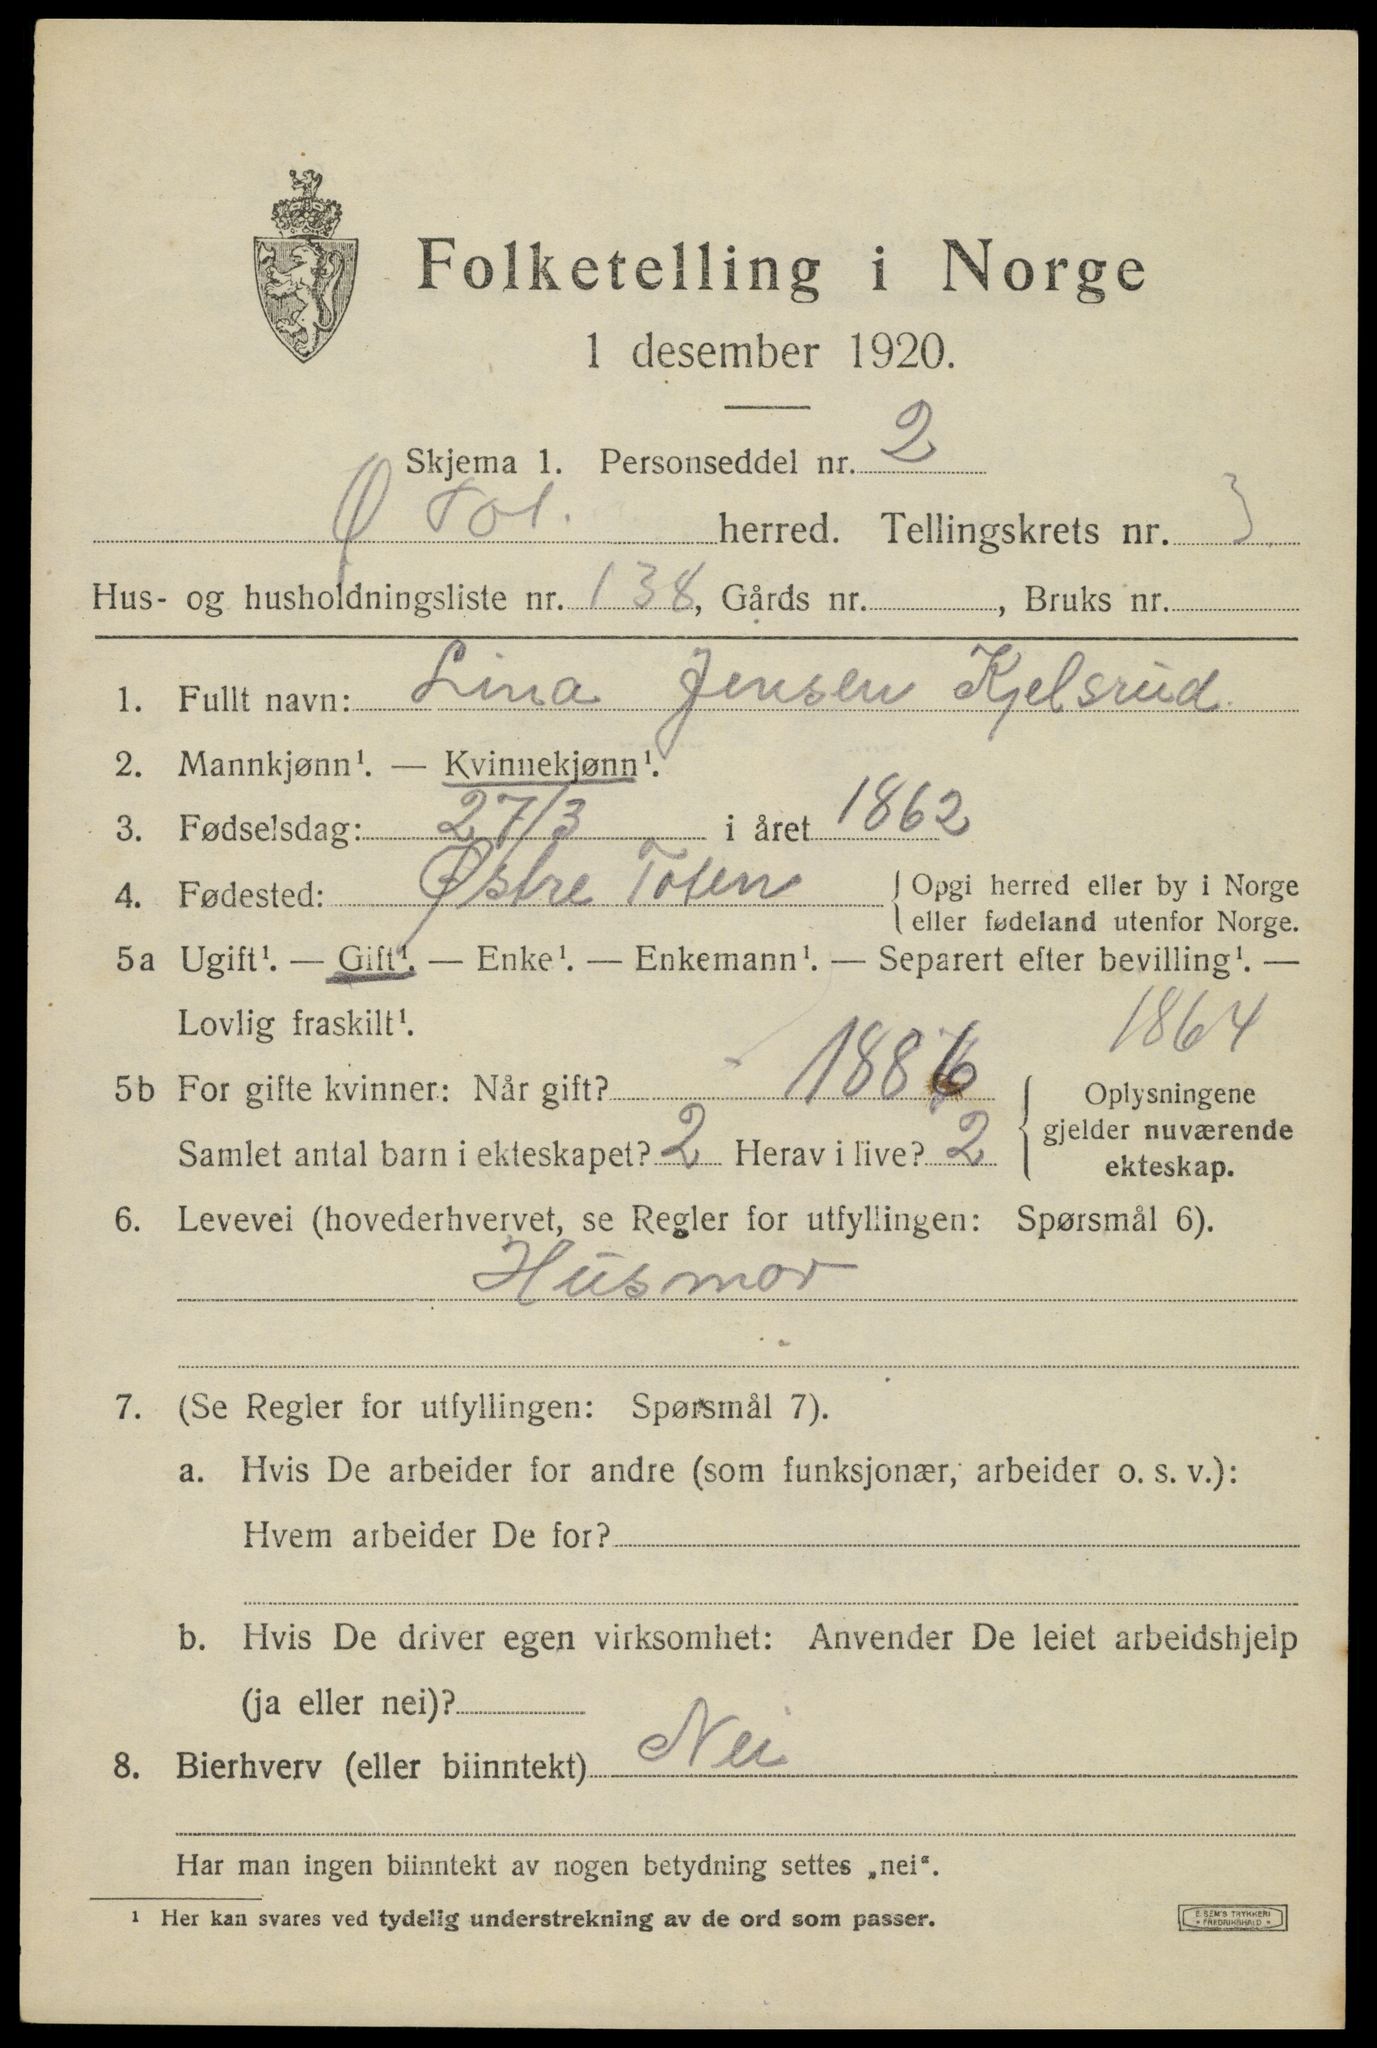 Folketelling i Norge
1 desember 1920.
Skjema 1. Personseddel nr. 2
Ø Tot. herred. Tellingskrets nr. 3.
Hus- og husholdningsliste nr. 138, Gårds nr. , Bruks nr.
1. Fullt navn: Lina Jensen Kjelsrud.
2. Mannkjønn¹. — Kvinnekjønn¹.
3. Fødselsdag: 27/3 i året 1862
4. Fødested: Østre Toten { Opgi herred eller by i Norge
eller fødeland utenfor Norge.
5a Ugift¹. — Gift¹. — Enke¹. — Enkemann¹. — Separert efter bevilling¹. —
Lovlig fraskilt¹.
1864
5b For gifte kvinner: Når gift? 1886 { Oplysningene
gjelder nuværende
Samlet antal barn i ekteskapet? 2 Herav i live? 2
ekteskap.
6. Levevei (hovederhvervet, se Regler for utfyllingen: Spørsmål 6).
Husmor
7. (Se Regler for utfyllingen: Spørsmål 7).
a. Hvis De arbeider for andre (som funksjonær, arbeider o. s. v.):
Hvem arbeider De for?
b. Hvis De driver egen virksomhet: Anvender De leiet arbeidshjelp
(ja eller nei)?
8. Bierhverv (eller biinntekt) Nei
Har man ingen biinntekt av nogen betydning settes „nei“.
¹ Her kan svares ved tydelig understrekning av de ord som passer.
E. SEM'S TRYKKERI
• FREDRIKSHALD •